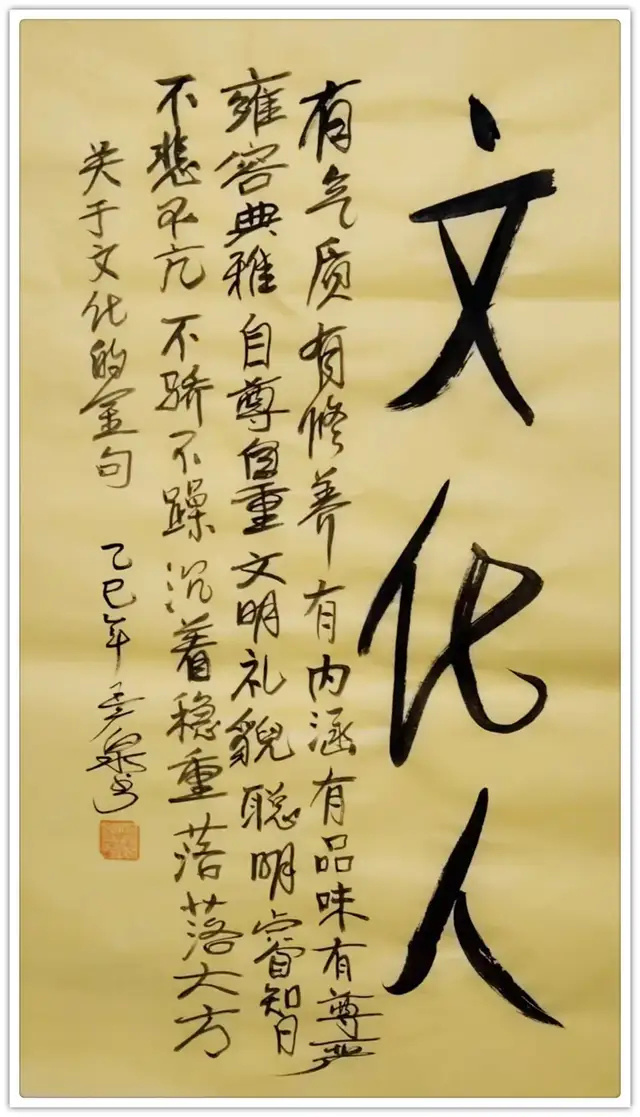 文化人
有气质有修养有内涵有品味有尊严
雍容典雅自尊自重文明礼貌聪明睿智
不悲不亢不骄不躁沉着稳重落落大方
关于文化的金句 乙巳年 泉书